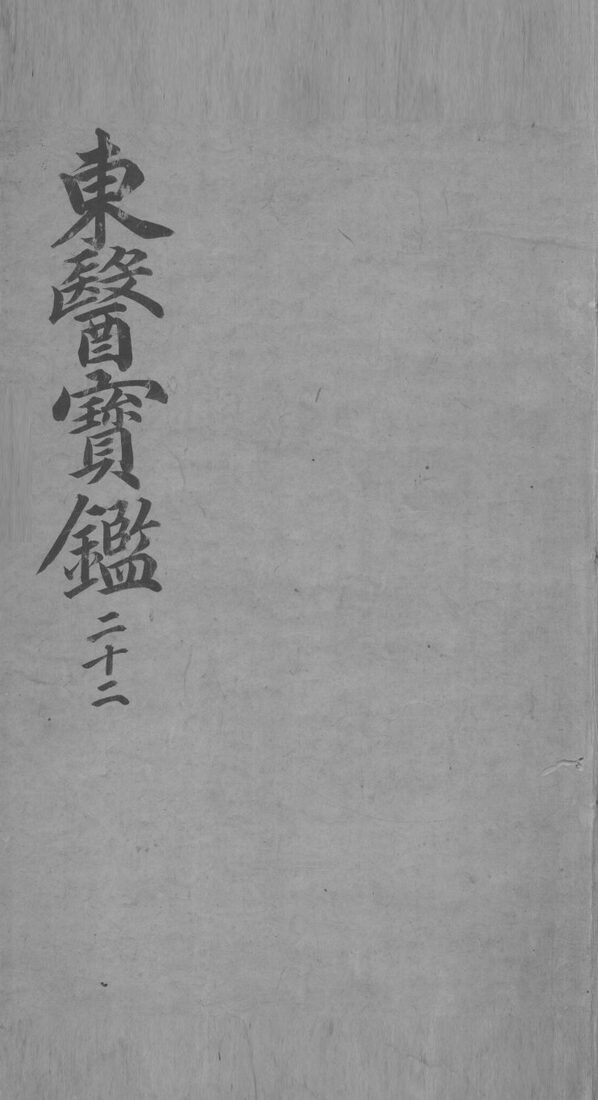 東醫寶鑑二十二